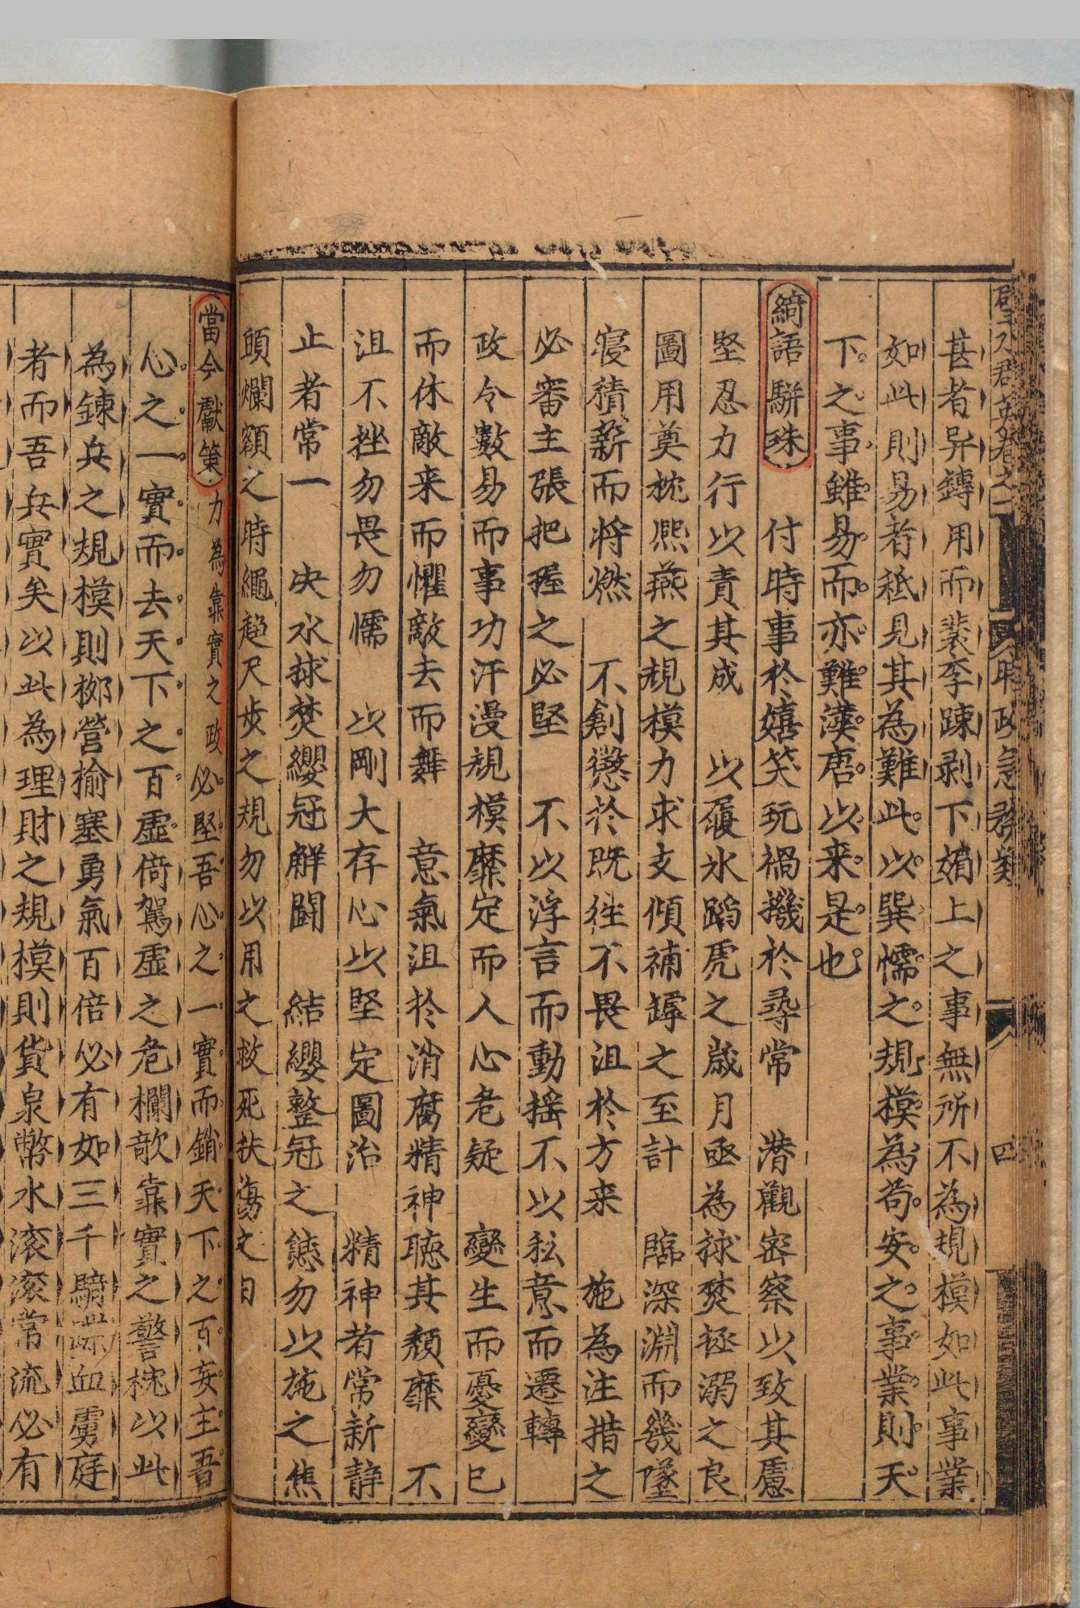 甚者异鏄用而裴李踈剥下媚上之事無所不為規模如此事業
如此則易者秪見其為難此以巽懦之規模為苟安之事業則天
下之事雖易而亦難漢唐以来是也
綺語駢珠 付時事於嬉笑玩禍機於尋常 潜觀密察以致其慮
堅忍力行以責其成 以履氷蹈虎之歲月亟為救焚拯溺之良
圖用奠枕熙燕之規模力求支傾補罅之至計 臨深淵而幾墜
寝積薪而将燃 不創懲於既往不畏沮於方来 施為注措之
必審主張把握之必堅 不以浮言而動揺不以私意而遷轉
政令數易而事功汗漫規模靡定而人心老疑 變生而憂變已
而休敵来而懼敵去而舞 意氣沮於消腐精神聴其頽靡 不
沮不挫勿畏勿懦 以剛大存心以堅定圖治 精神者常新静
止者常一 决水捄焚纓冠解鬪 結纓整冠之態勿以施之焦
頭爛額之時繩趨尺步之規勿以用之救死扶傷之日
當今獻策 力為靠實之政 必堅吾心之一實而銷天下之百妄主吾
心之一實而去天下之百虚倚駕虚之危欄欹靠實之警枕以此
為鍊兵之規模則栁營揄塞勇氣百倍必有如三千騎喋血虜庭
者而吾兵實矣以此為理財之規模則貨泉幣水滚滚常流必有
四